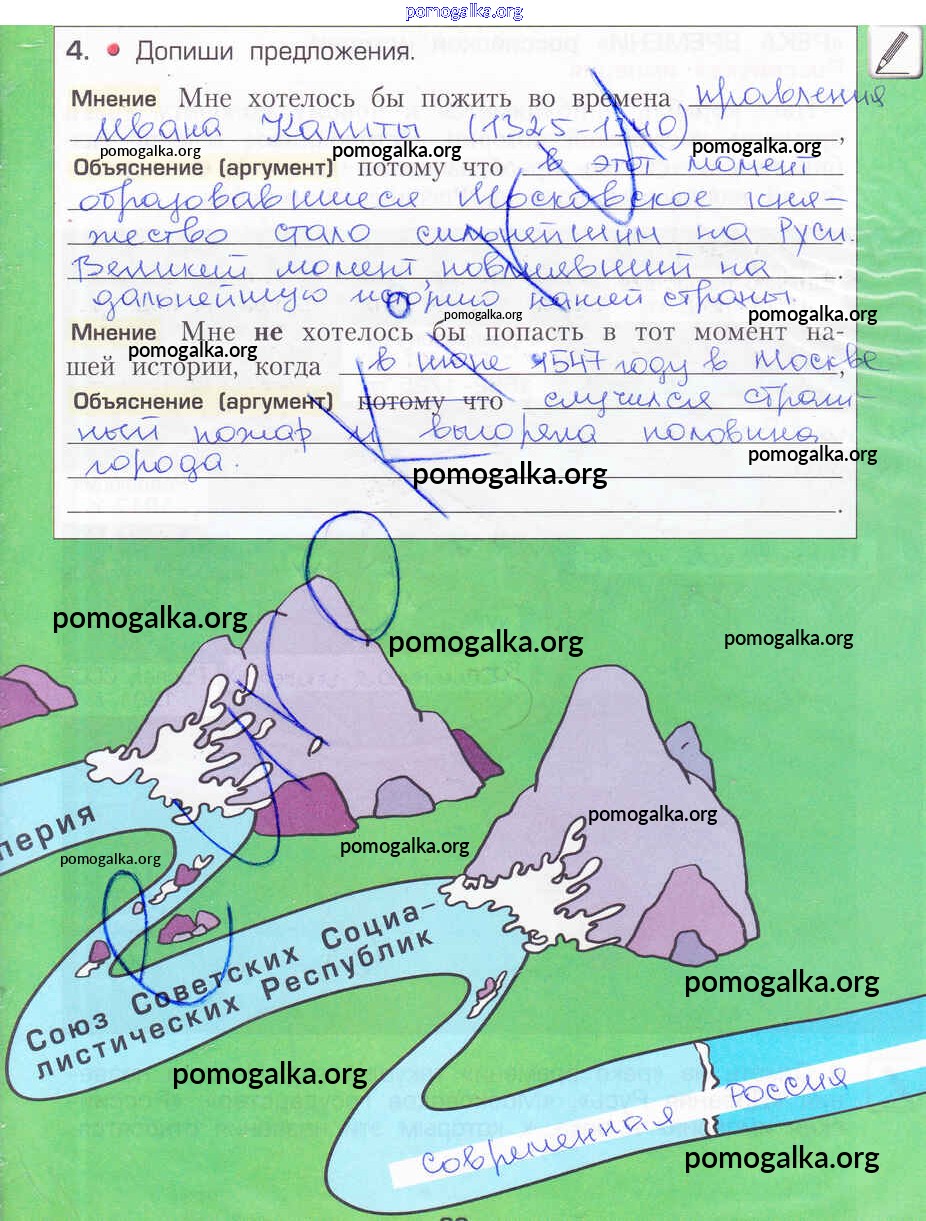 pomogalka.org
4. • Допиши предложения.
Мнение Мне хотелось бы пожить во времена правления
Ивана Калиты (1325-1340),
pomogalka.org pomogalka.org pomogalka.org
Объяснение (аргумент) потому что в этот момент
образовавшиеся Московское кня-
жество стало сильнейшим на Руси.
Великий момент, повлиявший на .
дальнейшую историю нашей страны.
pomogalka.org pomogalka.org
Мнение Мне не хотелось бы попасть в тот момент на-
pomogalka.org
шей истории, когда в июне 1547 году в Москве,
Объяснение (аргумент) потому что случился страш-
ный пожар и выгорела половина
города.
pomogalka.org
pomogalka.org
.
pomogalka.org
pomogalka.org
pomogalka.org
pomogalka.org
перия
pomogalka.org
pomogalka.org
Союз Советских Социа-
листических Республик
pomogalka.org
pomogalka.org
современная Россия
pomogalka.org